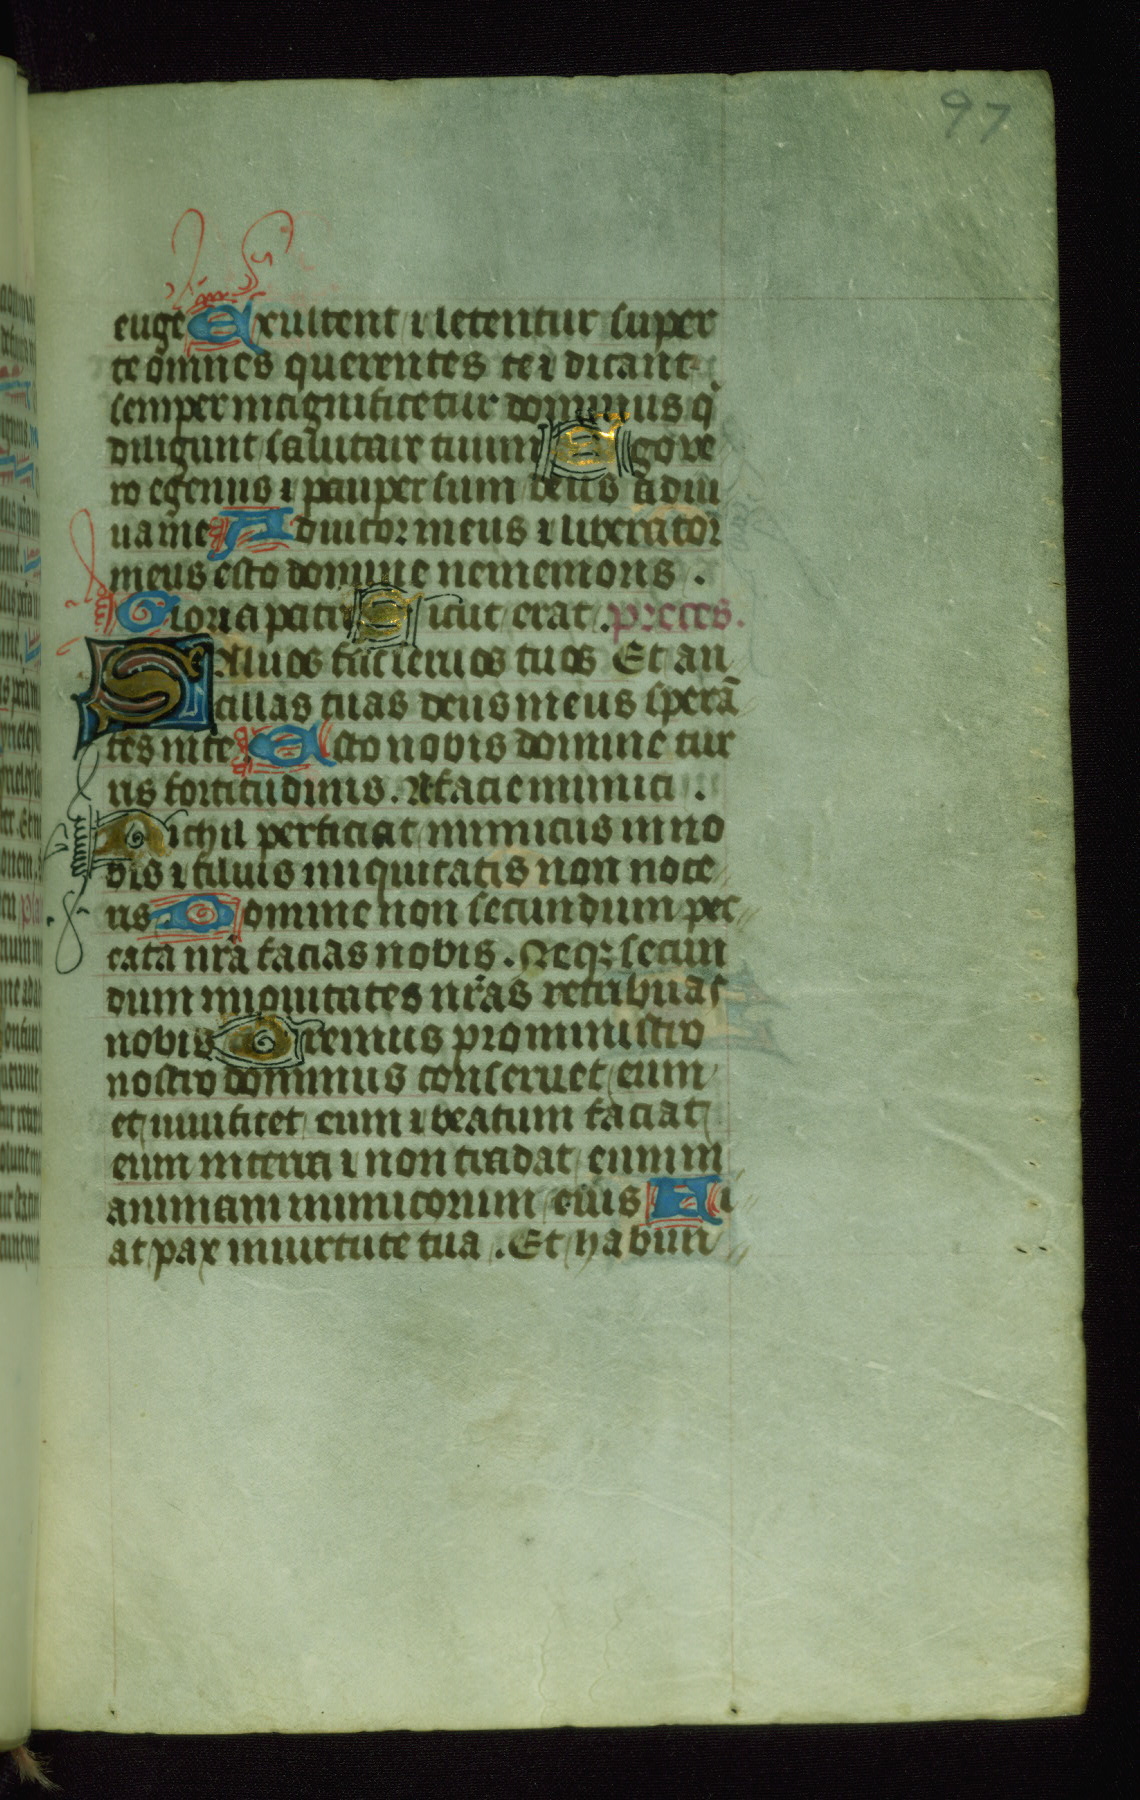 97
euge Exultent ⁊ letentur super
te omnes querentes te ⁊ dicant
semper magnificetur dominus q̄
diligunt salutare tuum Ego ve
ro egenus ⁊ pauper sum deus adiu
uame Adiutor meus ⁊ liberator
meus esto domine nememoris .
Gloria patri Sicut erat . preces.
Saluos fac seruos tuos Et an
cillas tuas deus meus sperā
tes in te Esto nobis domine tur
ris fortitudinis . A facie inimici .
Nichil perficiat inimicus in no
bis ⁊ filius iniquitatis non noce
us Domine non secundum pec
cata nr̄a facias nobis . Neqꝫ secun
dum iniquitates nr̄as retribuas
nobis Oremus pro ministro
nostro dominus conseruet eum
et uiuificet eum ⁊ beatum faciat
eum in terra ⁊ non tradat eum in
animam inimicorum eius Fi
at pax in uirtute tua . Et habun